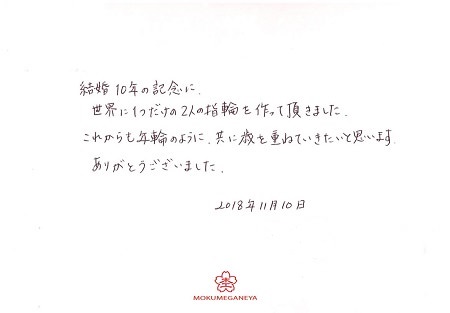 結婚10年の記念に.
世界に1つだけの2人の指輪を作って頂きました.
これからも年輪のように、共に歳を重ねていきたいと思います.
ありがとうございました.
2018年11月10日
MOKUMEGANEYA